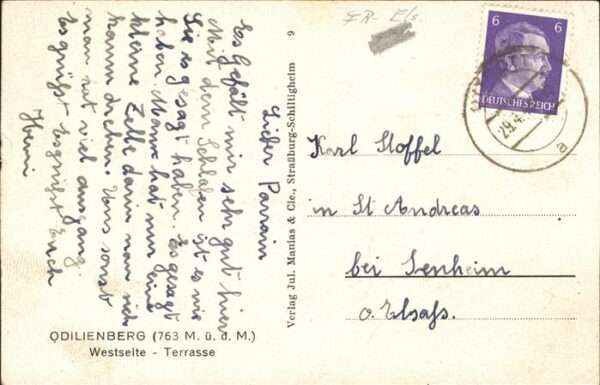 Lieber Parrain
Es Gefällt mir sehr gut hier
Mit dem Schlafen ist es wie
Sie es gesagt haben. Es gesagt
haben. Man hat nur eine
kleine Zelle darin man sich
kaum drehen. Uns sonst
man hat viel ausgang.
Es grüßt Es grüßt Euch
Henri
ODILIENBERG (763 M. ü. d. M.)
Westseite - Terrasse
Verlag Jul. Manias & Cie., Straßburg-Schiltigheim 9
FR- Els.
6 6
DEUTSCHES REICH
29.4
a
Karl Stoffel
in St Andreas
bei Senheim
o. Elsaß.